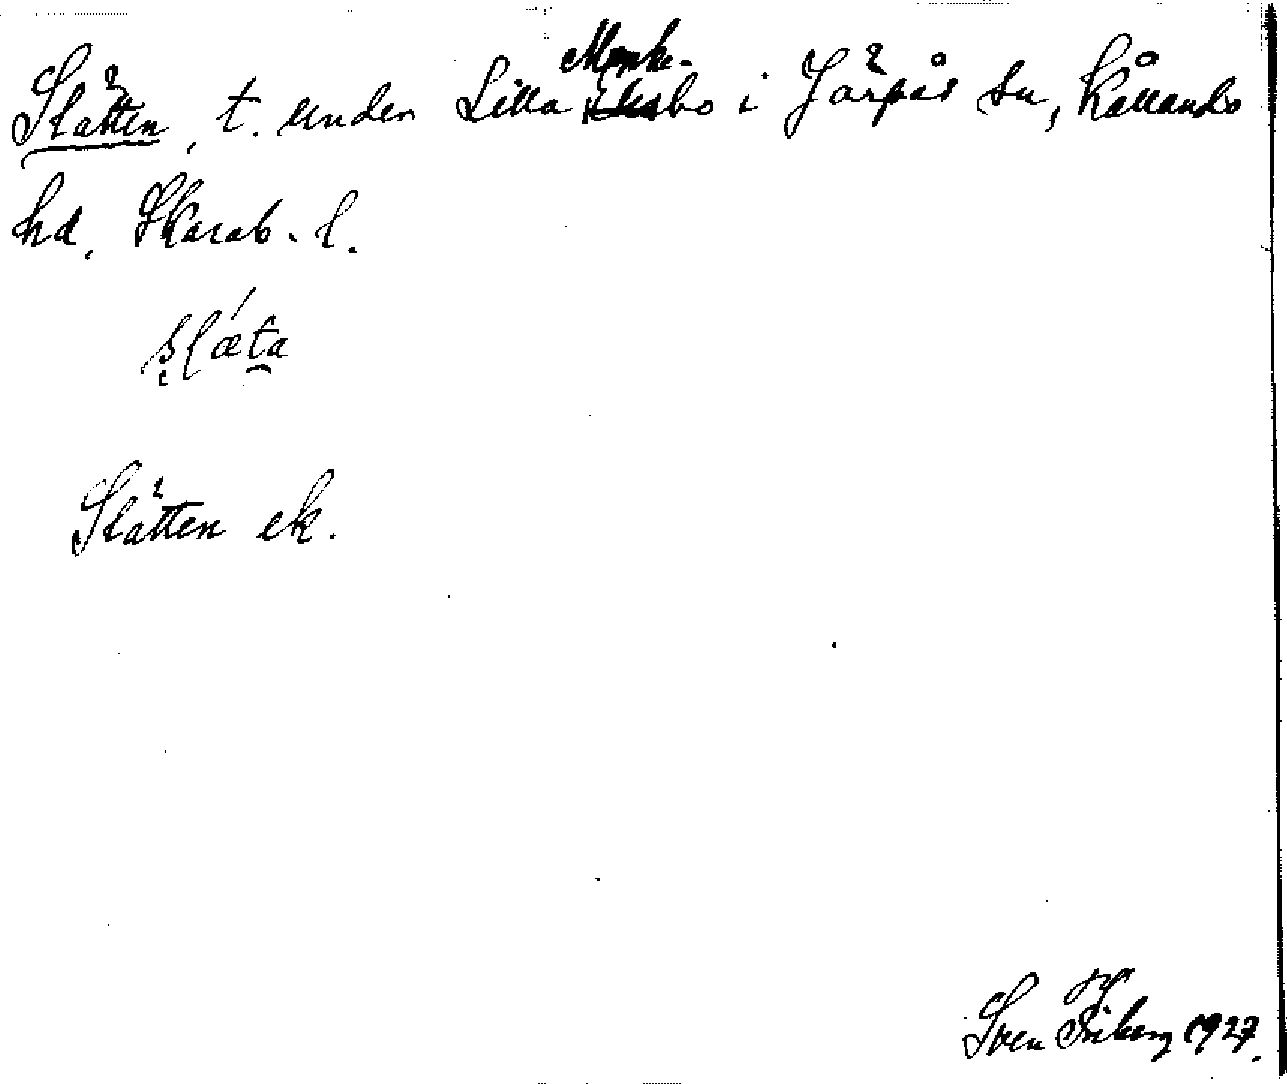 Slätten, t. under Lilla Munke-bo i Järpås sn, Kållands
hd. Skarab. l.
slǽta
Slätten ek.
Sven Friberg 1927.